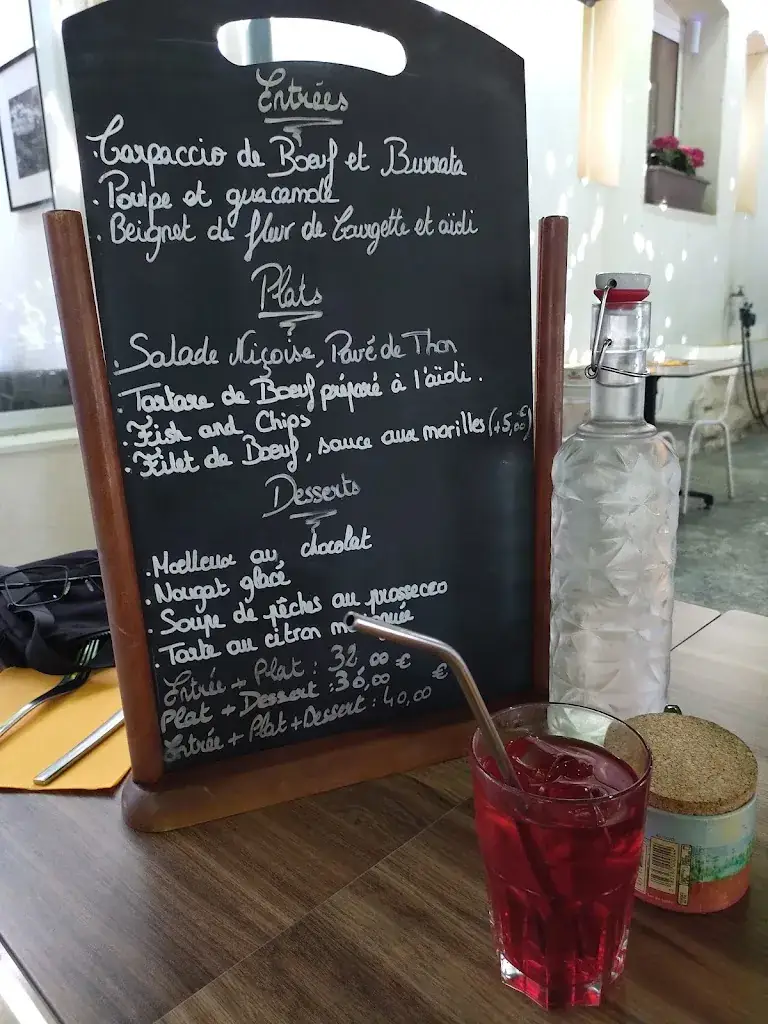 Entrées
. Carpaccio de Boeuf et Burrata
. Poulpe et guacamole
. Beignet de fleur de Courgette et aïoli
Plats
. Salade Niçoise, Pavé de Thon
. Tartare de Boeuf préparé à l'aïoli.
. Fish and Chips
. Filet de Boeuf, sauce aux morilles (+5,00€)
Desserts
. Moelleux au chocolat
. Nougat glacé
. Soupe de pêches au prossecco
. Tarte au citron
Entrée + Plat : 32,00 €
Plat + Dessert : 30,00 €
Entrée + Plat + Dessert : 40,00 €